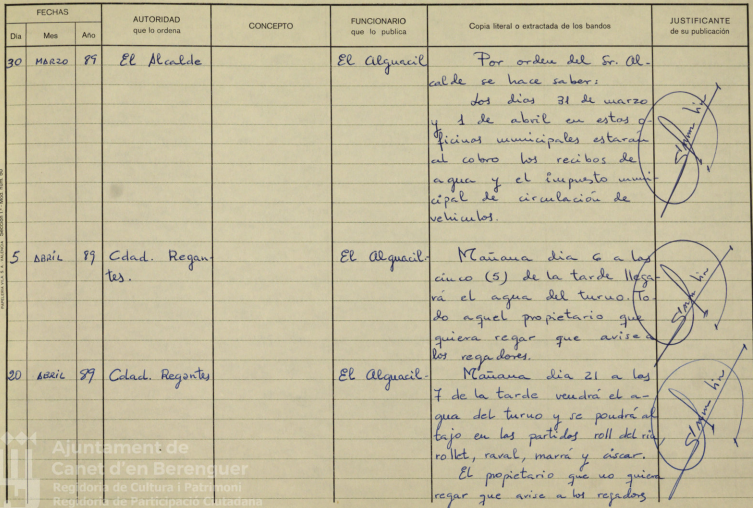 FECHAS
AUTORIDAD
que lo ordena
CONCEPTO
FUNCIONARIO
que lo publica
Copia literal o extractada de los bandos
JUSTIFICANTE
de su publicación
Dia Mes Año
30 MARZO 89 El Alcalde El Alguacil Por orden del Sr. Al-
calde se hace saber:
Los dias 31 de marzo
y 1 de abril en estas o-
ficinas municipales estarán
al cobro los recibos de
agua y el impuesto muni-
cipal de circulación de
vehiculos.
5 ABRIL 89 Cdad. Regan- El Alguacil. Mañana dia 6 a las
tes. cinco (5) de la tarde llega-
rá el agua del turno. To-
do aquel propietario que
quiera regar que avise a
los regadores.
20 ABRIL 89 Cdad. Regantes El Alguacil. Mañana dia 21 a las
7 de la tarde vendrá el a-
gua del turno y se pondrá al
tajo en las partidas roll del riu
rollet, raval, marrá y ciscar.
El propietario que no quiera
regar que avise a los regadors
Ajuntament de
Canet d'en Berenguer
Regidoria de Cultura i Patrimoni
Regidoria de Participació Ciutadana